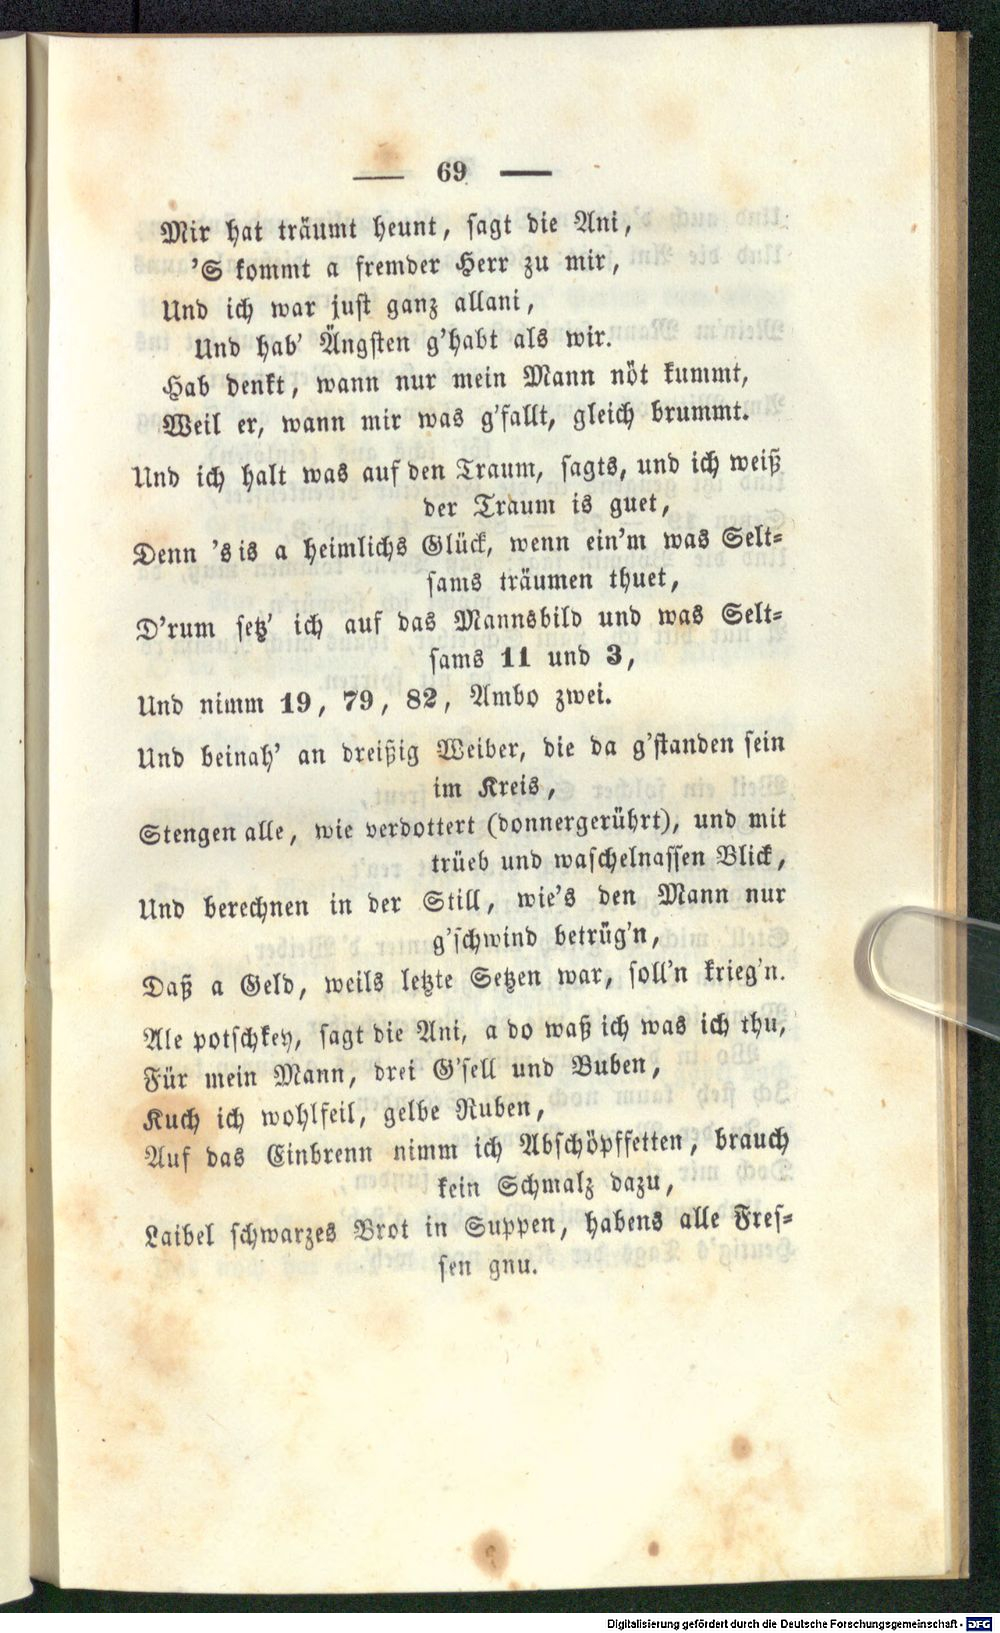 — 69 —
Mir hat träumt heunt, sagt die Ani,
'S kommt a fremder Herr zu mir,
Und ich war just ganz allani,
Und hab' Ängsten g'habt als wir.
Hab denkt, wann nur mein Mann nöt kummt,
Weil er, wann mir was g'fallt, gleich brummt.
Und ich halt was auf den Traum, sagts, und ich weiß
der Traum is guet,
Denn 's is a heimlichs Glück, wenn ein'm was Selt-
sams träumen thuet,
D'rum setz' ich auf das Mannsbild und was Selt-
sams 11 und 3,
Und nimm 19, 79, 82, Ambo zwei.
Und beinah' an dreißig Weiber, die da g'standen sein
im Kreis,
Stengen alle, wie verdottert (donnergerührt), und mit
trüeb und waschelnassen Blick,
Und berechnen in der Still, wie's den Mann nur
g'schwind betrüg'n,
Daß a Geld, weils letzte Setzen war, soll'n krieg'n.
Ale potschkey, sagt die Ani, a do waß ich was ich thu,
Für mein Mann, drei G'sell und Buben,
Kuch ich wohlfeil, gelbe Ruben,
Auf das Einbrenn nimm ich Abschöpffetten, brauch
kein Schmalz dazu,
Laibel schwarzes Brot in Suppen, habens alle Fres-
sen gnu.
Digitalisierung gefördert durch die Deutsche Forschungsgemeinschaft - DFG